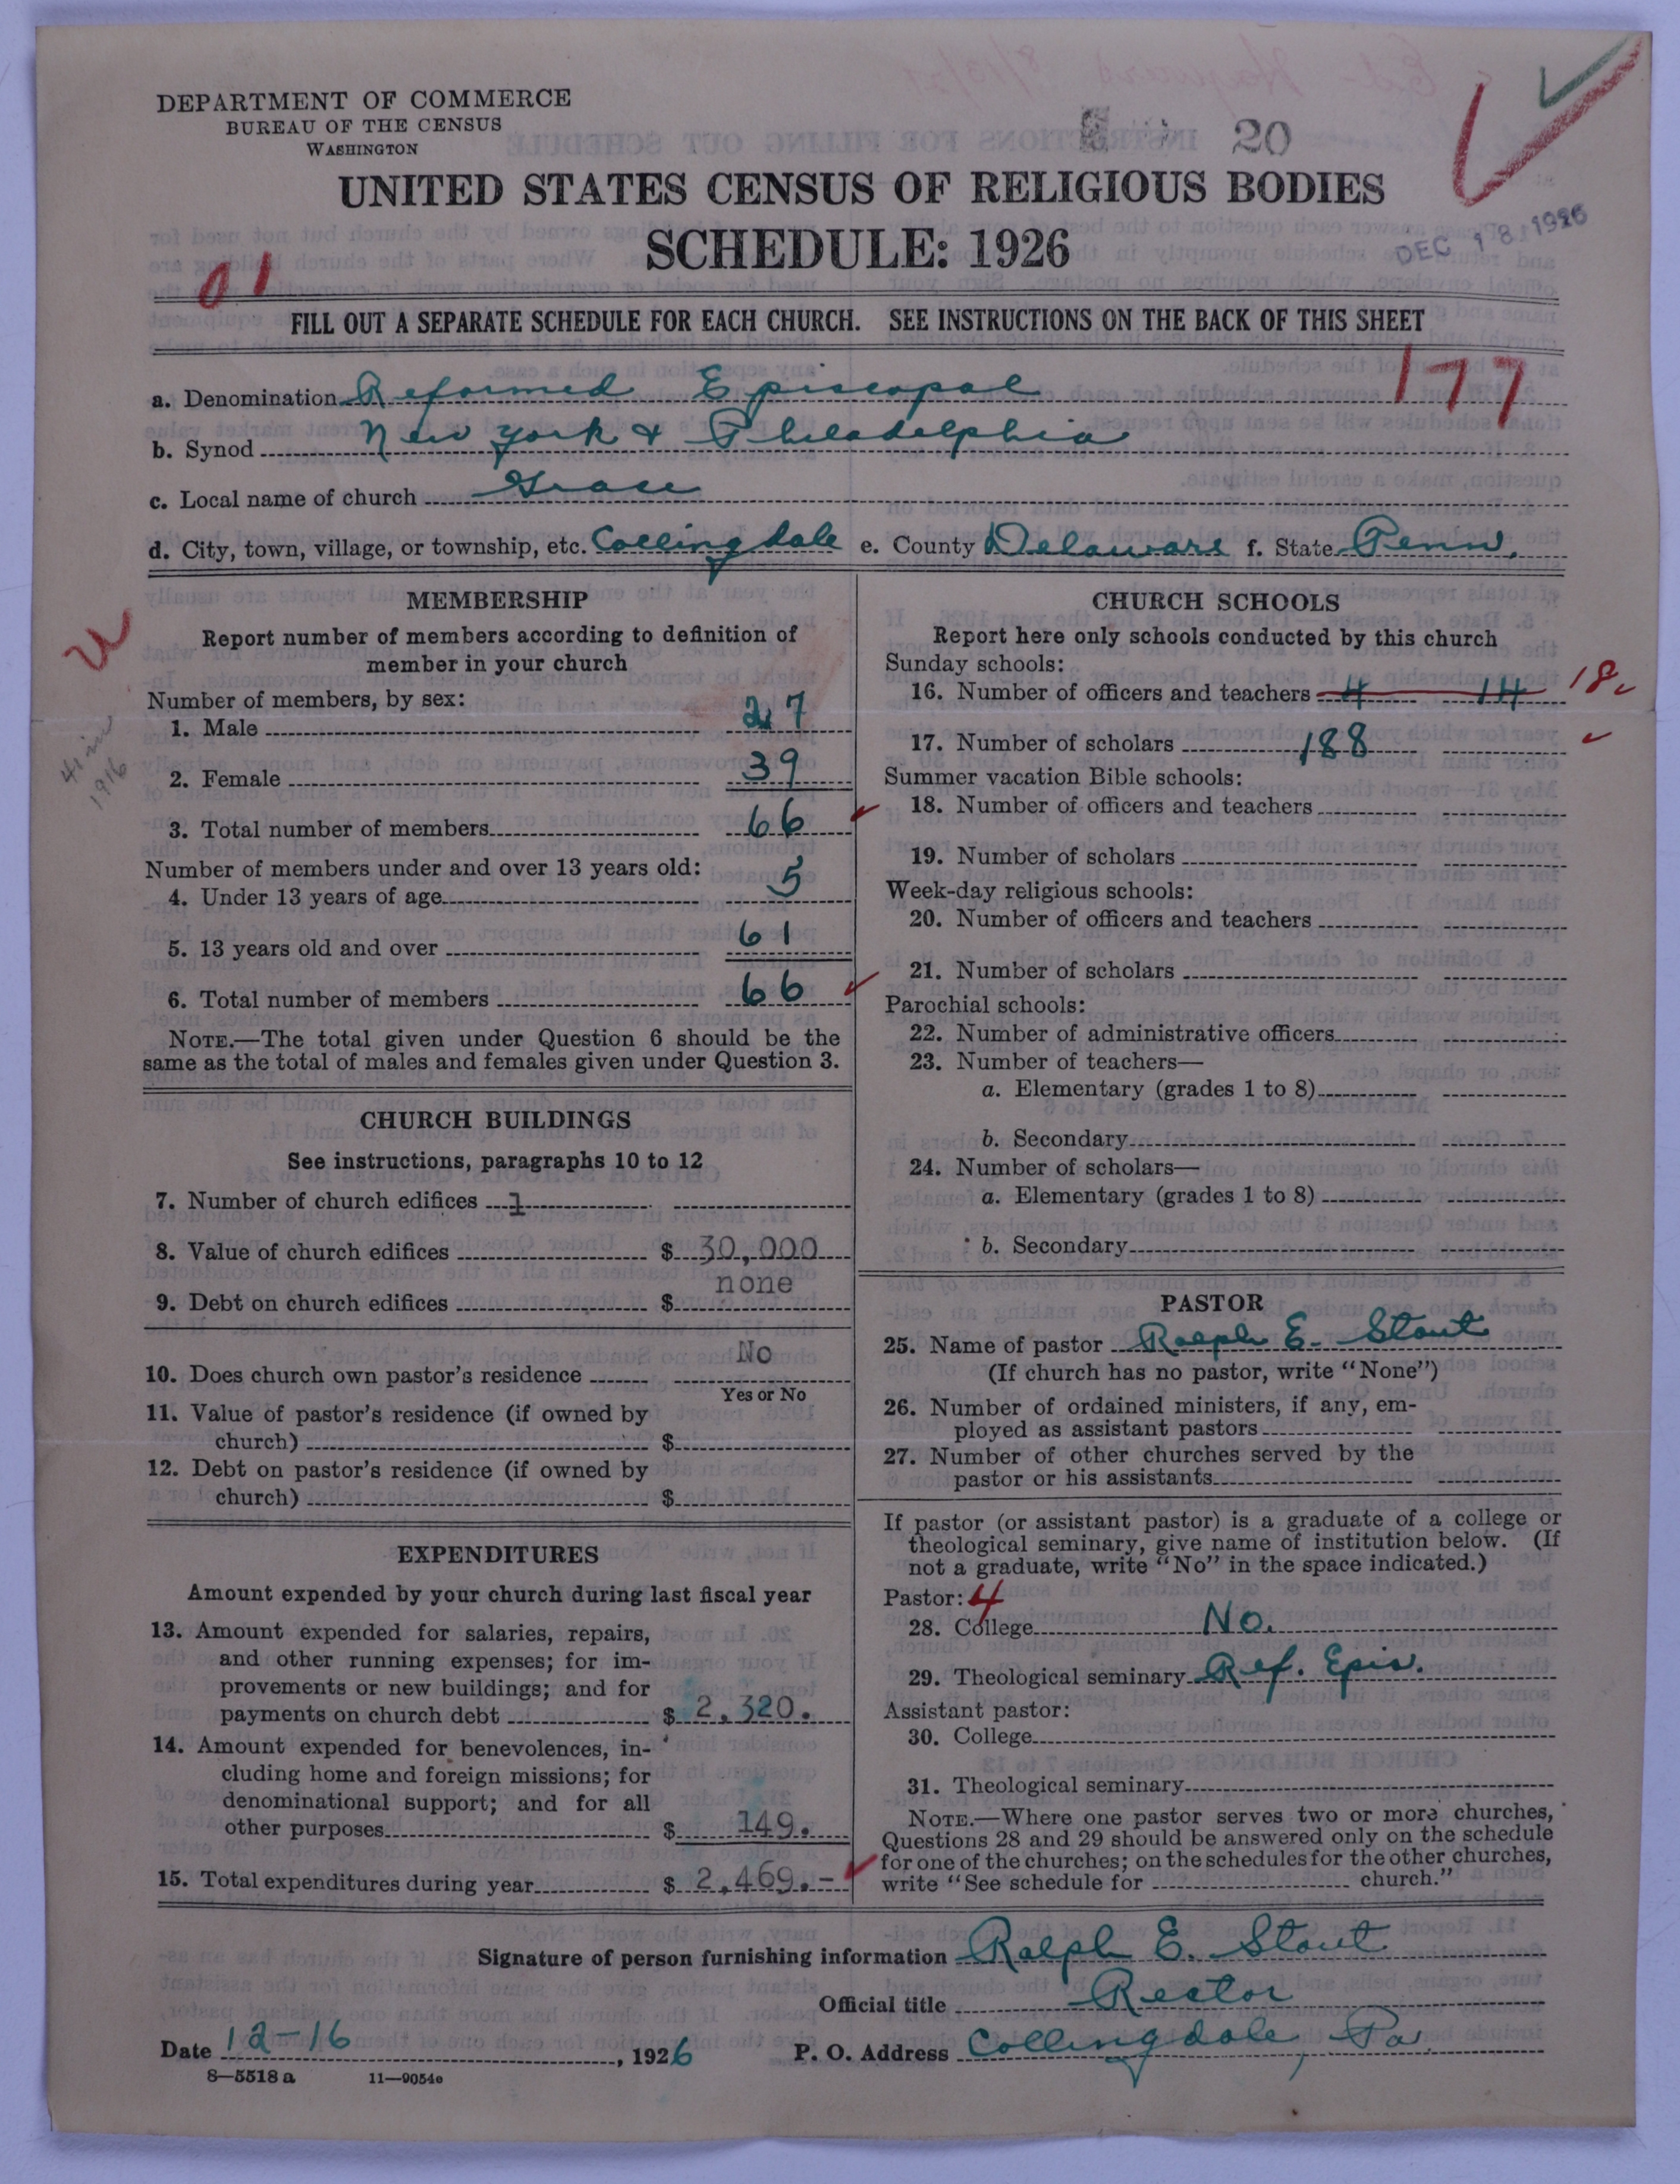 DEPARTMENT OF COMMERCE
BUREAU OF THE CENSUS
WASHINGTON
20
UNITED STATES CENSUS OF RELIGIOUS BODIES
SCHEDULE: 1926
DEC 18 1926
01
FILL OUT A SEPARATE SCHEDULE FOR EACH CHURCH. SEE INSTRUCTIONS ON THE BACK OF THIS SHEET
177
a. Denomination Reformed Episcopal
b. Synod New York & Philadelphia
c. Local name of church Grace
d. City, town, village, or township, etc. Collingdale e. County Delaware f. State Penn.
MEMBERSHIP
Report number of members according to definition of
member in your church
Number of members, by sex:
1. Male 27
2. Female 39
3. Total number of members 66
41 in
1916
Number of members under and over 13 years old:
4. Under 13 years of age 5
5. 13 years old and over 61
6. Total number of members 66
NOTE.—The total given under Question 6 should be the
same as the total of males and females given under Question 3.
CHURCH BUILDINGS
See instructions, paragraphs 10 to 12
7. Number of church edifices 1
8. Value of church edifices $ 30,000
9. Debt on church edifices $ none
10. Does church own pastor's residence No
Yes or No
11. Value of pastor's residence (if owned by
church) $
12. Debt on pastor's residence (if owned by
church) $
EXPENDITURES
Amount expended by your church during last fiscal year
13. Amount expended for salaries, repairs,
and other running expenses; for im-
provements or new buildings; and for
payments on church debt $ 2,320.
14. Amount expended for benevolences, in-
cluding home and foreign missions; for
denominational support; and for all
other purposes $ 149.
15. Total expenditures during year $ 2,469.-
CHURCH SCHOOLS
Report here only schools conducted by this church
Sunday schools:
16. Number of officers and teachers 4 14 18
17. Number of scholars 188
Summer vacation Bible schools:
18. Number of officers and teachers
19. Number of scholars
Week-day religious schools:
20. Number of officers and teachers
21. Number of scholars
Parochial schools:
22. Number of administrative officers
23. Number of teachers—
a. Elementary (grades 1 to 8)
b. Secondary
24. Number of scholars—
a. Elementary (grades 1 to 8)
b. Secondary
PASTOR
25. Name of pastor Ralph E. Stout
(If church has no pastor, write "None")
26. Number of ordained ministers, if any, em-
ployed as assistant pastors
27. Number of other churches served by the
pastor or his assistants
If pastor (or assistant pastor) is a graduate of a college or
theological seminary, give name of institution below. (If
not a graduate, write "No" in the space indicated.)
Pastor: 4
28. College No.
29. Theological seminary Ref. Epis.
Assistant pastor:
30. College
31. Theological seminary
NOTE.—Where one pastor serves two or more churches,
Questions 28 and 29 should be answered only on the schedule
for one of the churches; on the schedules for the other churches,
write "See schedule for church."
Signature of person furnishing information Ralph E. Stout
Official title Rector
Date 12-16, 1926 P. O. Address Collingdale, Pa.
8—5518 a 11—9054e